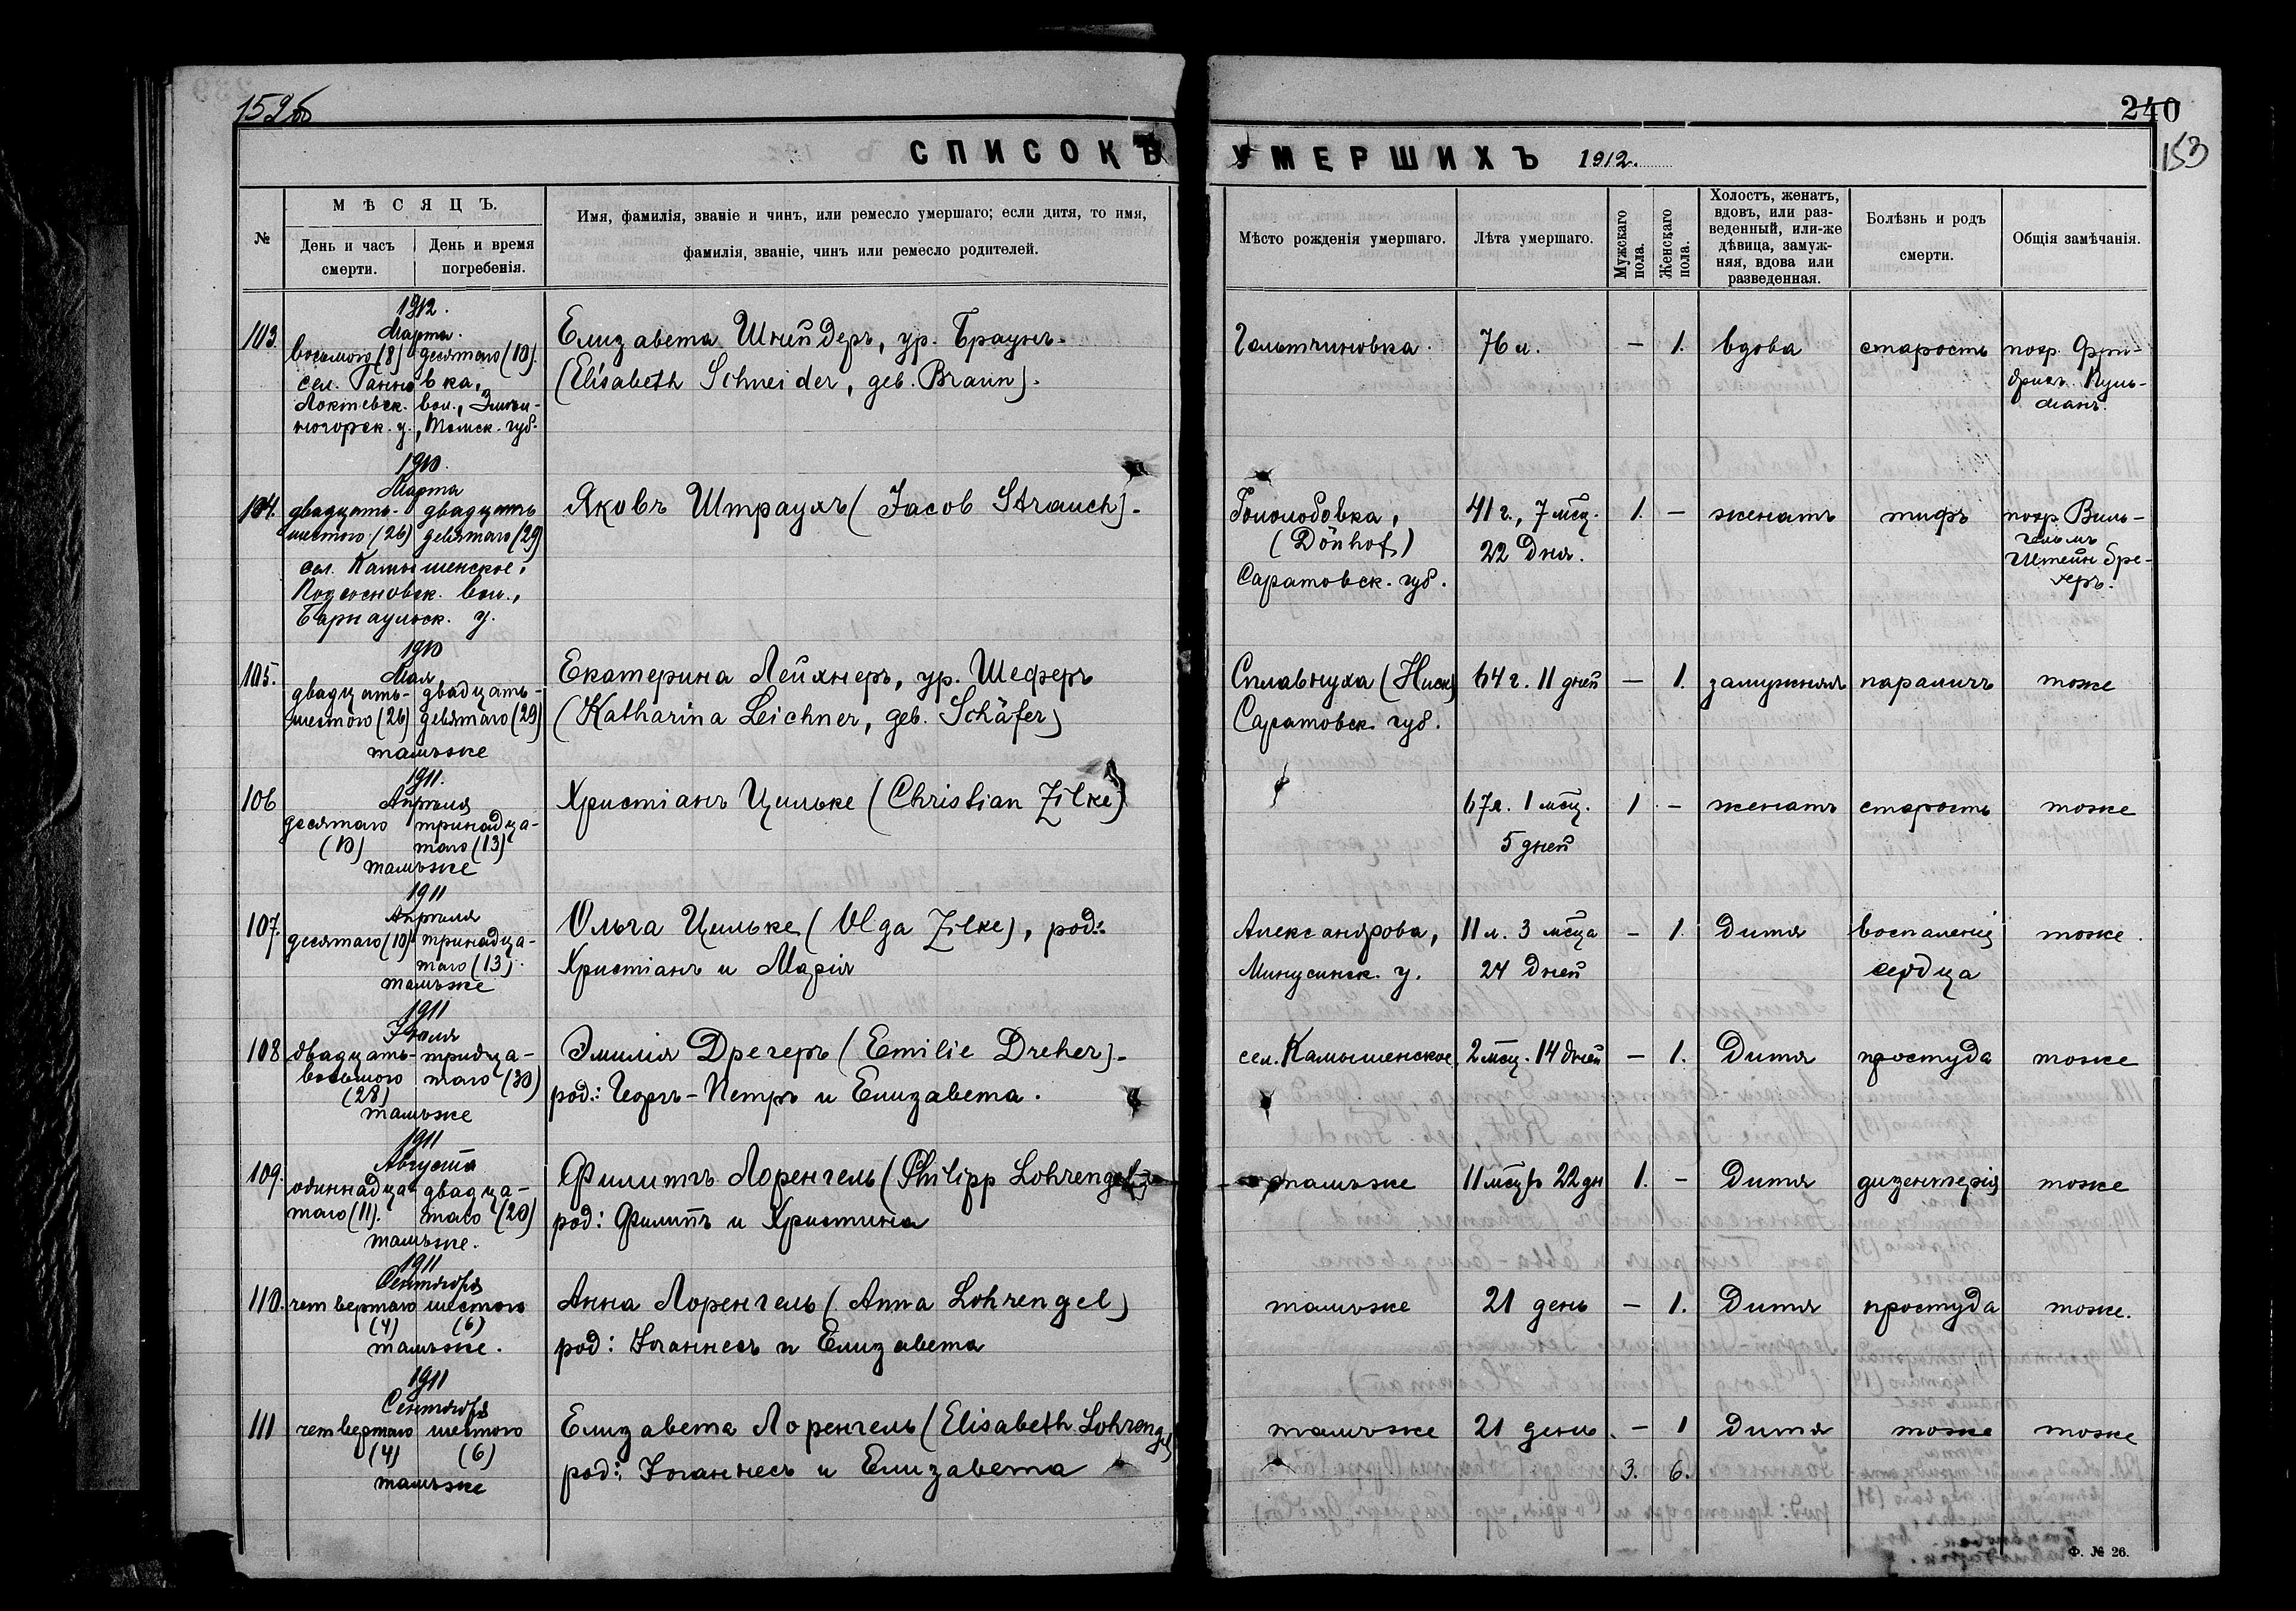 152об
240
153
СПИСОКЪ УМЕРШИХЪ 1912.
№
МѢСЯЦЪ.
День и часъ смерти.
День и время погребенія.
Имя, фамилія, званіе и чинъ, или ремесло умершаго; если дитя, то имя,
фамилія, званіе, чинъ или ремесло родителей.
Мѣсто рожденія умершаго.
Лѣта умершаго.
Мужскаго пола.
Женскаго пола.
Холостъ, женатъ,
вдовъ, или раз-
веденный, или-же
дѣвица, замуж-
няя, вдова или
разведенная.
Болѣзнь и родъ
смерти.
Общія замѣчанія.
1912.
Марта.
103. восьмого (8) десятаго (10).
сел. Ганновка,
Локтевск. вол., Змѣи-
ногорск. у., Томск. губ.
Елизавета Шнейдеръ, ур. Браунъ.
(Elisabeth Schneider, geb. Braun).
76 л. — 1. вдова старость погр. Фри-
дрих. Куль-
ман.
1910.
Марта
104. двадцать- двадцать
шестого (26) девятаго (29)
сел. Камышенское,
Подсосновск. вол.,
Барнаульск. у.
Яковъ Штраухъ (Jacob Strauch).
(Dönhof)
Саратовск. губ.
41 г., 7 мсц.
22 дня.
1. — женатъ тифъ погр. Виль-
гельмъ
Штейнбре-
херъ.
1910
Мая
105. двадцать- двадцать-
шестого (26) девятаго (29)
тамъже
Екатерина Лейхнеръ, ур. Шеферъ
(Katharina Leichner, geb. Schäfer)
Сплавнуха (Huck)
Саратовск. губ.
64 г. 11 дней — 1. замужняя параличъ тоже
1911.
Апрѣля
106 десятаго тринадца-
(10) таго (13)
тамъже
Христіанъ Цильке (Christian Zilke)
67 л. 1 мсц.
5 дней
1 — женатъ старость тоже
1911
Апрѣля
107. десятаго (10) тринадца-
таго (13).
тамъже
Ольга Цильке (Olga Zilke), род.:
Христіанъ и Марія
Александрова,
Минусинск. у.
11 л. 3 мсца
24 дней
— 1. Дитя воспаленіе
сердца
тоже.
1911
Іюля
108 двадцать- тридца-
восьмого таго (30)
(28)
тамъже
Эмилія Дрегеръ (Emilie Dreher).
род.: Георгъ-Петръ и Елизавета.
сел. Камышенское 2 мсц. 14 дней — 1. Дитя простуда тоже
1911
Августа
109. одиннадца- двадца-
таго (11). таго (20)
тамъже.
Филиппъ Лоренгель (Philipp Lohrengel)
род: Филиппъ и Христина
тамъже 11 мсцъ 22 дн 1. — Дитя дизентерія тоже
1911
Сентября
110. четвертаго шестого
(4) (6)
тамъже.
Анна Лоренгель (Anna Lohrengel)
род: Іоаннесъ и Елизавета
тамъже 21 день — 1. Дитя простуда тоже.
1911
Сентября
111 четвертаго шестого
(4) (6)
тамъже
Елизавета Лоренгель (Elisabeth Lohrengel)
род: Іоаннесъ и Елизавета
тамъже 21 день. — 1 Дитя тоже тоже
3. 6.
Ф. № 26.